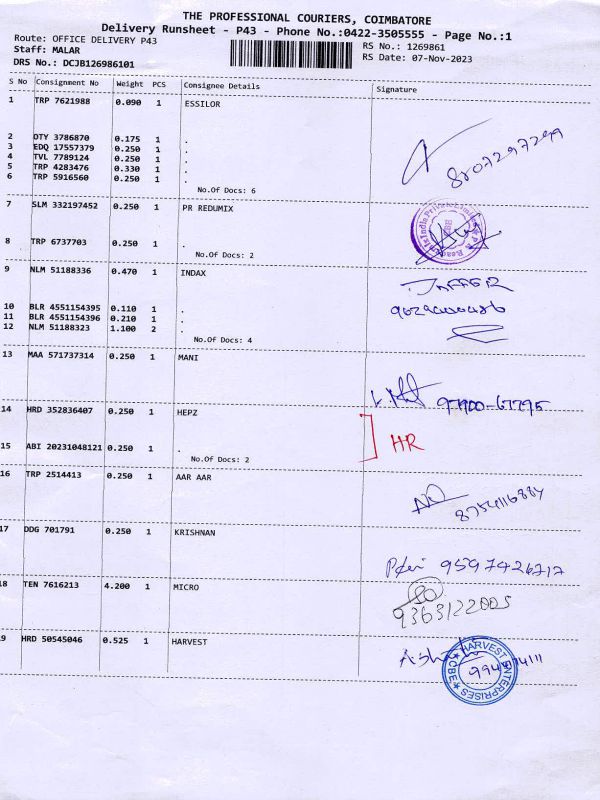 THE PROFESSIONAL COURIERS, COIMBATORE
Delivery Runsheet - P43 - Phone No.:0422-3505555 - Page No.:1
Route: OFFICE DELIVERY P43
RS No.: 1269861
Staff: MALAR
RS Date: 07-Nov-2023
DRS No.: DCJB126986101
S No Consignment No Weight PCS Consignee Details Signature
1 TRP 7621988 0.090 1 ESSILOR
2 OTY 3786870 0.175 1 .
3 EDQ 17557379 0.250 1 .
4 TVL 7789124 0.250 1 .
5 TRP 4283476 0.330 1 .
6 TRP 5916560 0.250 1 .
8807297299
No.Of Docs: 6
7 SLM 332197452 0.250 1 PR REDUMIX
8 TRP 6737703 0.250 1 .
No.Of Docs: 2
9 NLM 51188336 0.470 1 INDAX
10 BLR 4551154395 0.110 1 .
11 BLR 4551154396 0.210 1 .
12 NLM 51188323 1.100 2 .
No.Of Docs: 4
13 MAA 571737314 0.250 1 MANI
97900-67795
14 HRD 352836407 0.250 1 HEPZ
HR
15 ABI 20231048121 0.250 1 .
No.Of Docs: 2
16 TRP 2514413 0.250 1 AAR AAR
8754116884
17 DDG 701791 0.250 1 KRISHNAN
9597426717
18 TEN 7616213 4.200 1 MICRO
9363122005
19 HRD 50545046 0.525 1 HARVEST
HARVEST ENTERPRISES
CBE